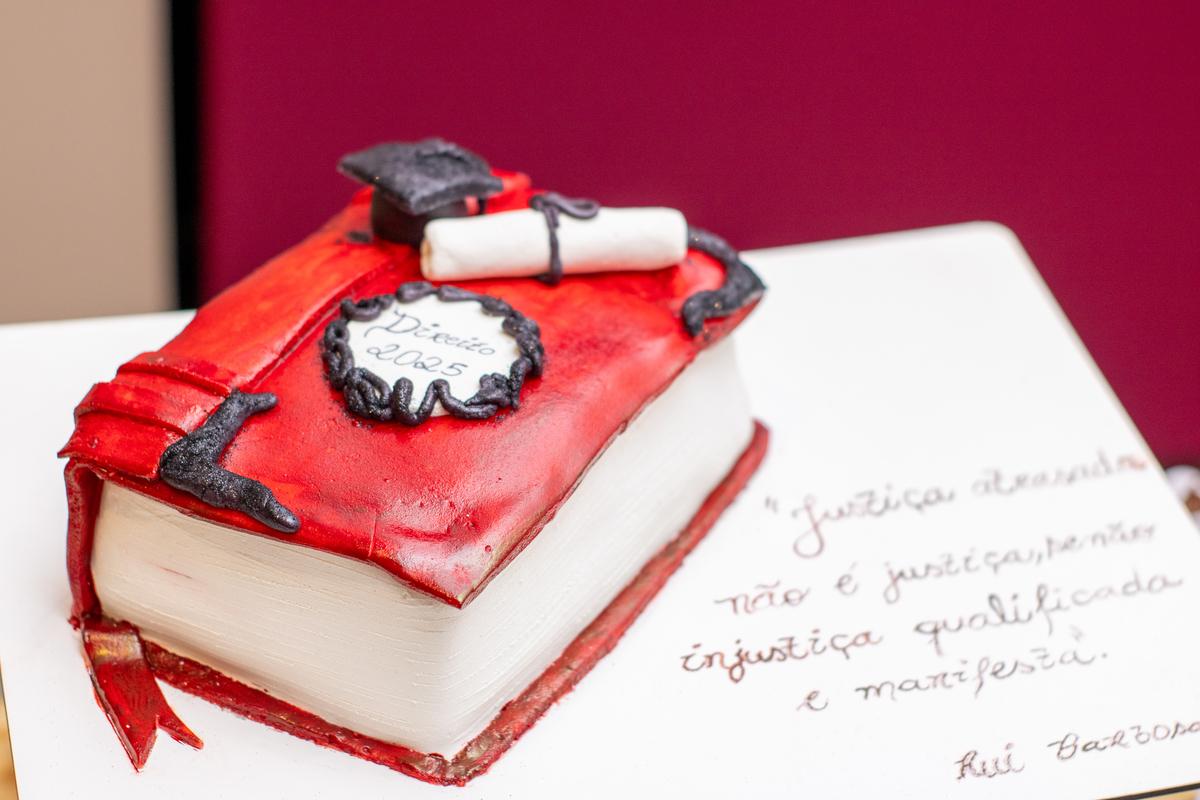 Direito
2025
"Justiça atrasada
não é justiça, senão
injustiça qualificada
e manifesta".
Rui Barbosa